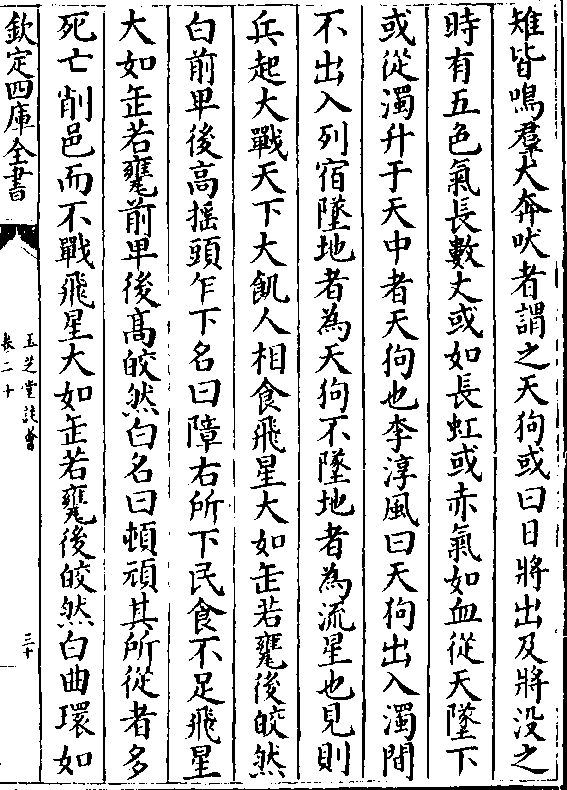 雉皆鳴羣犬奔吠者謂之天狗或曰日將出及將没之
時有五色氣長數丈或如長虹或赤氣如血從天墜下
或從濁升于天中者天狗也李淳風曰天狗出入濁間
不出入列宿墜地者為天狗不墜地者為流星也見則
兵起大戰天下大飢人相食飛星大如缶若甕後皎然
白前卑後高摇頭乍下名曰障右所下民食不足飛星
大如缶若甕前卑後髙皎然白名曰頓頑其所從者多
死亡削邑而不戰飛星大如缶若甕後皎然白曲環如
欽定四庫全書
玉芝堂談薈
卷二十
三十